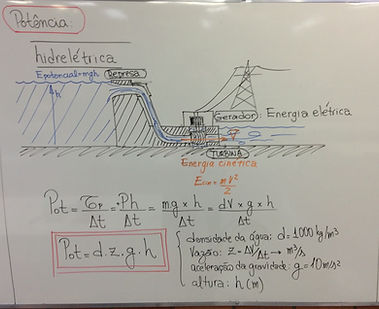 Potência:
hidrelétrica
Epotencial=mgh
Represa
h
Gerador: Energia elétrica
TURBINA
Energia cinética
Ecin = mV²/2
Pot = τp/Δt = Ph/Δt = m.g x h/Δt = dV x g x h/Δt
Pot = d.z.g.h
densidade da água: d=1000 kg/m³
Vazão: z = ΔV/Δt → m³/s
aceleração da gravidade: g=10m/s²
altura: h (m)